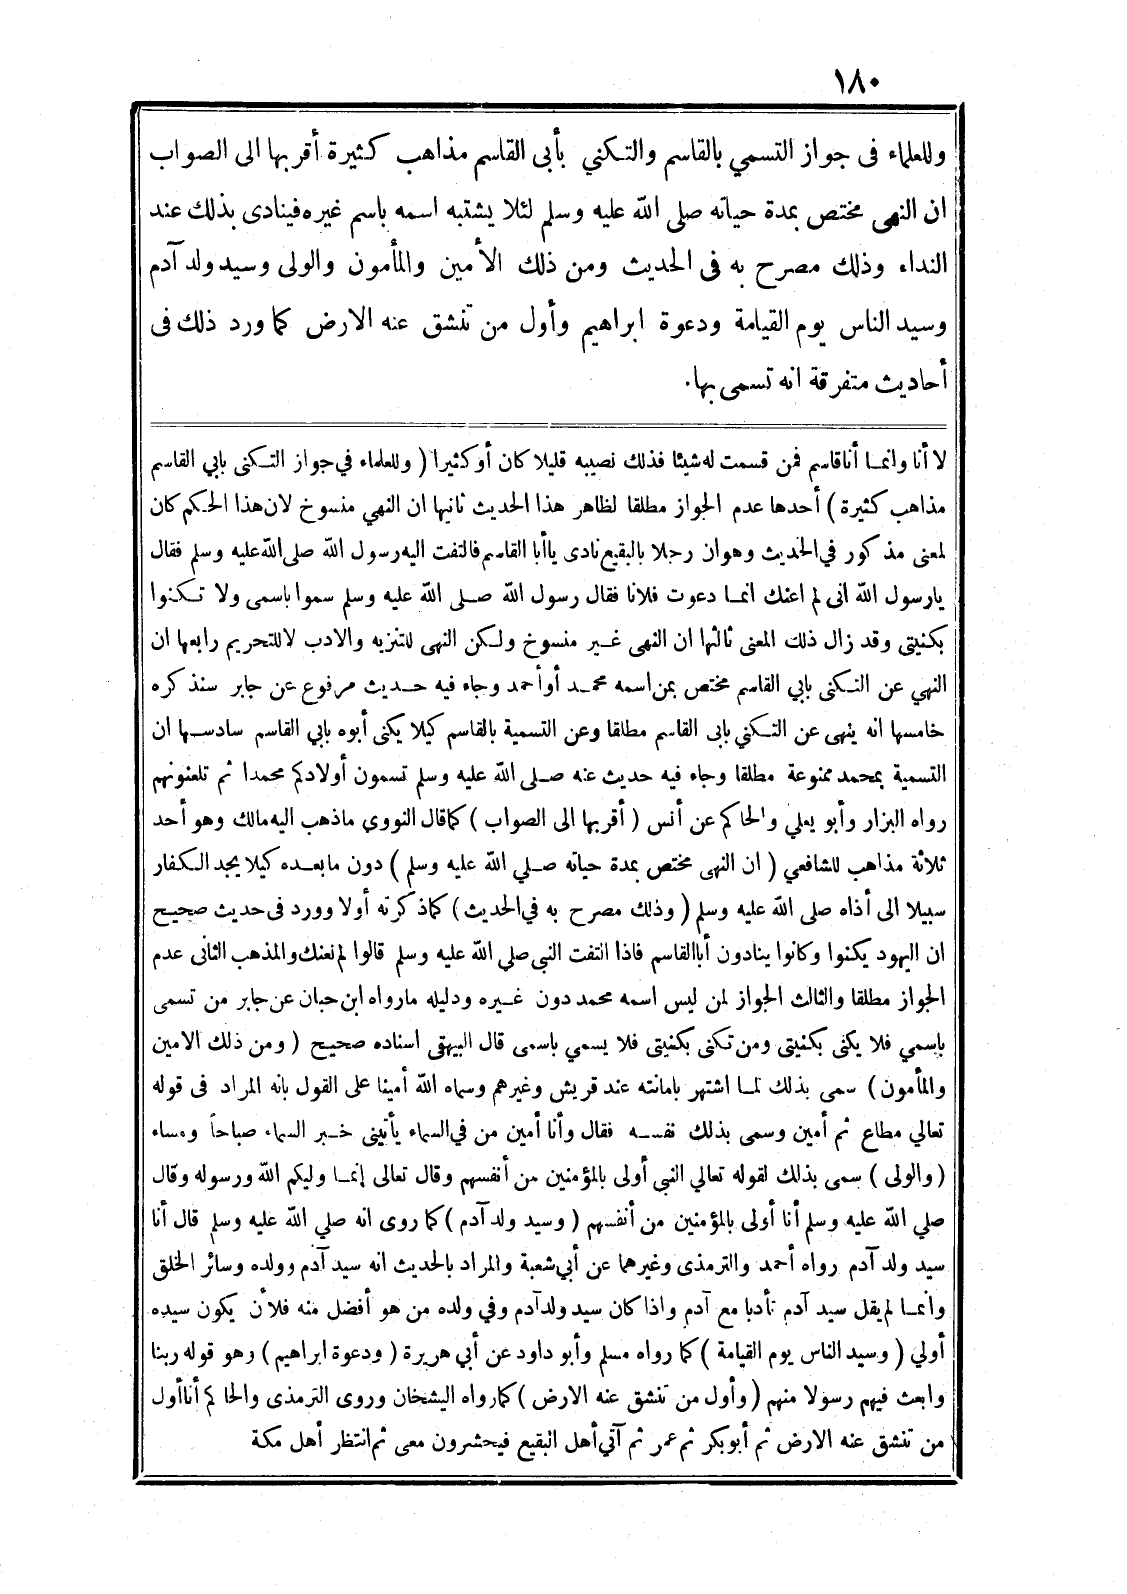 ١٨٠
وللعلماء فى جواز التسمي بالقاسم والتكني بأبى القاسم مذاهب كثيرة أقربها الى الصواب
ان النهى مختص بمدة حياته صلى الله عليه وسلم لئلا يشتبه اسمه باسم غيره فينادى بذلك عند
النداء وذلك مصرح به فى الحديث ومن ذلك الأمين والمأمون والولى وسيد ولد آدم
وسيد الناس يوم القيامة ودعوة ابراهيم وأول من تنشق عنه الارض كما ورد ذلك فى
أحاديث متفرقة انه تسمى بها.
لا أنا وانما أناقاسم فمن قسمت له شيئا فذلك نصيبه قليلا كان أوكثيرا ( وللعلماء في جواز التكنى بابي القاسم
مذاهب كثيرة ) أحدها عدم الجواز مطلقا لظاهر هذا الحديث ثانيها ان النهي منسوخ لان هذا الحكم كان
لمعنى مذكور في الحديث وهوان رجلا بالبقيع نادى ياأبا القاسم فالتفت اليه رسول الله صلى الله عليه وسلم فقال
يارسول الله انى لم اعنك انما دعوت فلانا فقال رسول الله صلى الله عليه وسلم سموا باسمى ولا تكنوا
بكنيتى وقد زال ذلك المعنى ثالثها ان النهى غير منسوخ ولكن النهى للتنزيه والادب لاللتحريم رابعها ان
النهي عن التكنى بابي القاسم مختص بمن اسمه محمد أوأحمد وجاء فيه حديث مرفوع عن جابر سنذكره
خامسها انه ينهى عن التكني بابى القاسم مطلقا وعن التسمية بالقاسم كيلا يكنى أبوه بابي القاسم سادسها ان
التسمية بمحمد ممنوعة مطلقا وجاء فيه حديث عنه صلى الله عليه وسلم تسمون أولادكم محمدا ثم تلعنونهم
رواه البزار وأبو يعلي والحاكم عن أنس ( أقربها الى الصواب ) كماقال النووي ماذهب اليه مالك وهو أحد
ثلاثة مذاهب للشافعي ( ان النهى مختص بمدة حياته صلي الله عليه وسلم ) دون مابعده كيلا يجد الكفار
سبيلا الى أذاه صلى الله عليه وسلم ( وذلك مصرح به في الحديث ) كماذكرته أولا وورد فى حديث صحيح
ان اليهود يكنوا وكانوا ينادون أباالقاسم فاذا التفت النبى صلي الله عليه وسلم قالوا لم نعنك والمذهب الثانى عدم
الجواز مطلقا والثالث الجواز لمن ليس اسمه محمد دون غيره ودليله مارواه ابن حبان عن جابر من تسمى
باسمي فلا يكنى بكنيتى ومن تكنى بكنيتى فلا يسمي باسمى قال البيهقى اسناده صحيح ( ومن ذلك الامين
والمأمون ) سمى بذلك لما اشتهر بامانته عند قريش وغيرهم وسماه الله أمينا على القول بانه المراد فى قوله
تعالي مطاع ثم أمين وسمى بذلك نفسه فقال وأنا أمين من في السماء يأتينى خبر السماء صباحاً ومساء
( والولى ) سمى بذلك لقوله تعالي النبي أولى بالمؤمنين من أنفسهم وقال تعالى إنما وليكم الله ورسوله وقال
صلي الله عليه وسلم أنا أولى بالمؤمنين من أنفسهم ( وسيد ولد آدم ) كما روى انه صلي الله عليه وسلم قال أنا
سيد ولد آدم رواه أحمد والترمذى وغيرهما عن أبي شعبة والمراد بالحديث انه سيد آدم وولده وسائر الخلق
وانما لم يقل سيد آدم تأدبا مع آدم واذا كان سيد ولدآدم وفي ولده من هو أفضل منه فلأن يكون سيده
أولي ( وسيد الناس يوم القيامة ) كما رواه مسلم وأبو داود عن أبي هريرة ( ودعوة ابراهيم ) وهو قوله ربنا
وابعث فيهم رسولا منهم ( وأول من تنشق عنه الارض ) كمارواه الشيخان وروى الترمذى والحاكم أناأول
من تنشق عنه الارض ثم أبوبكر ثم عمر ثم آتي أهل البقيع فيحشرون معى ثم انتظر أهل مكة